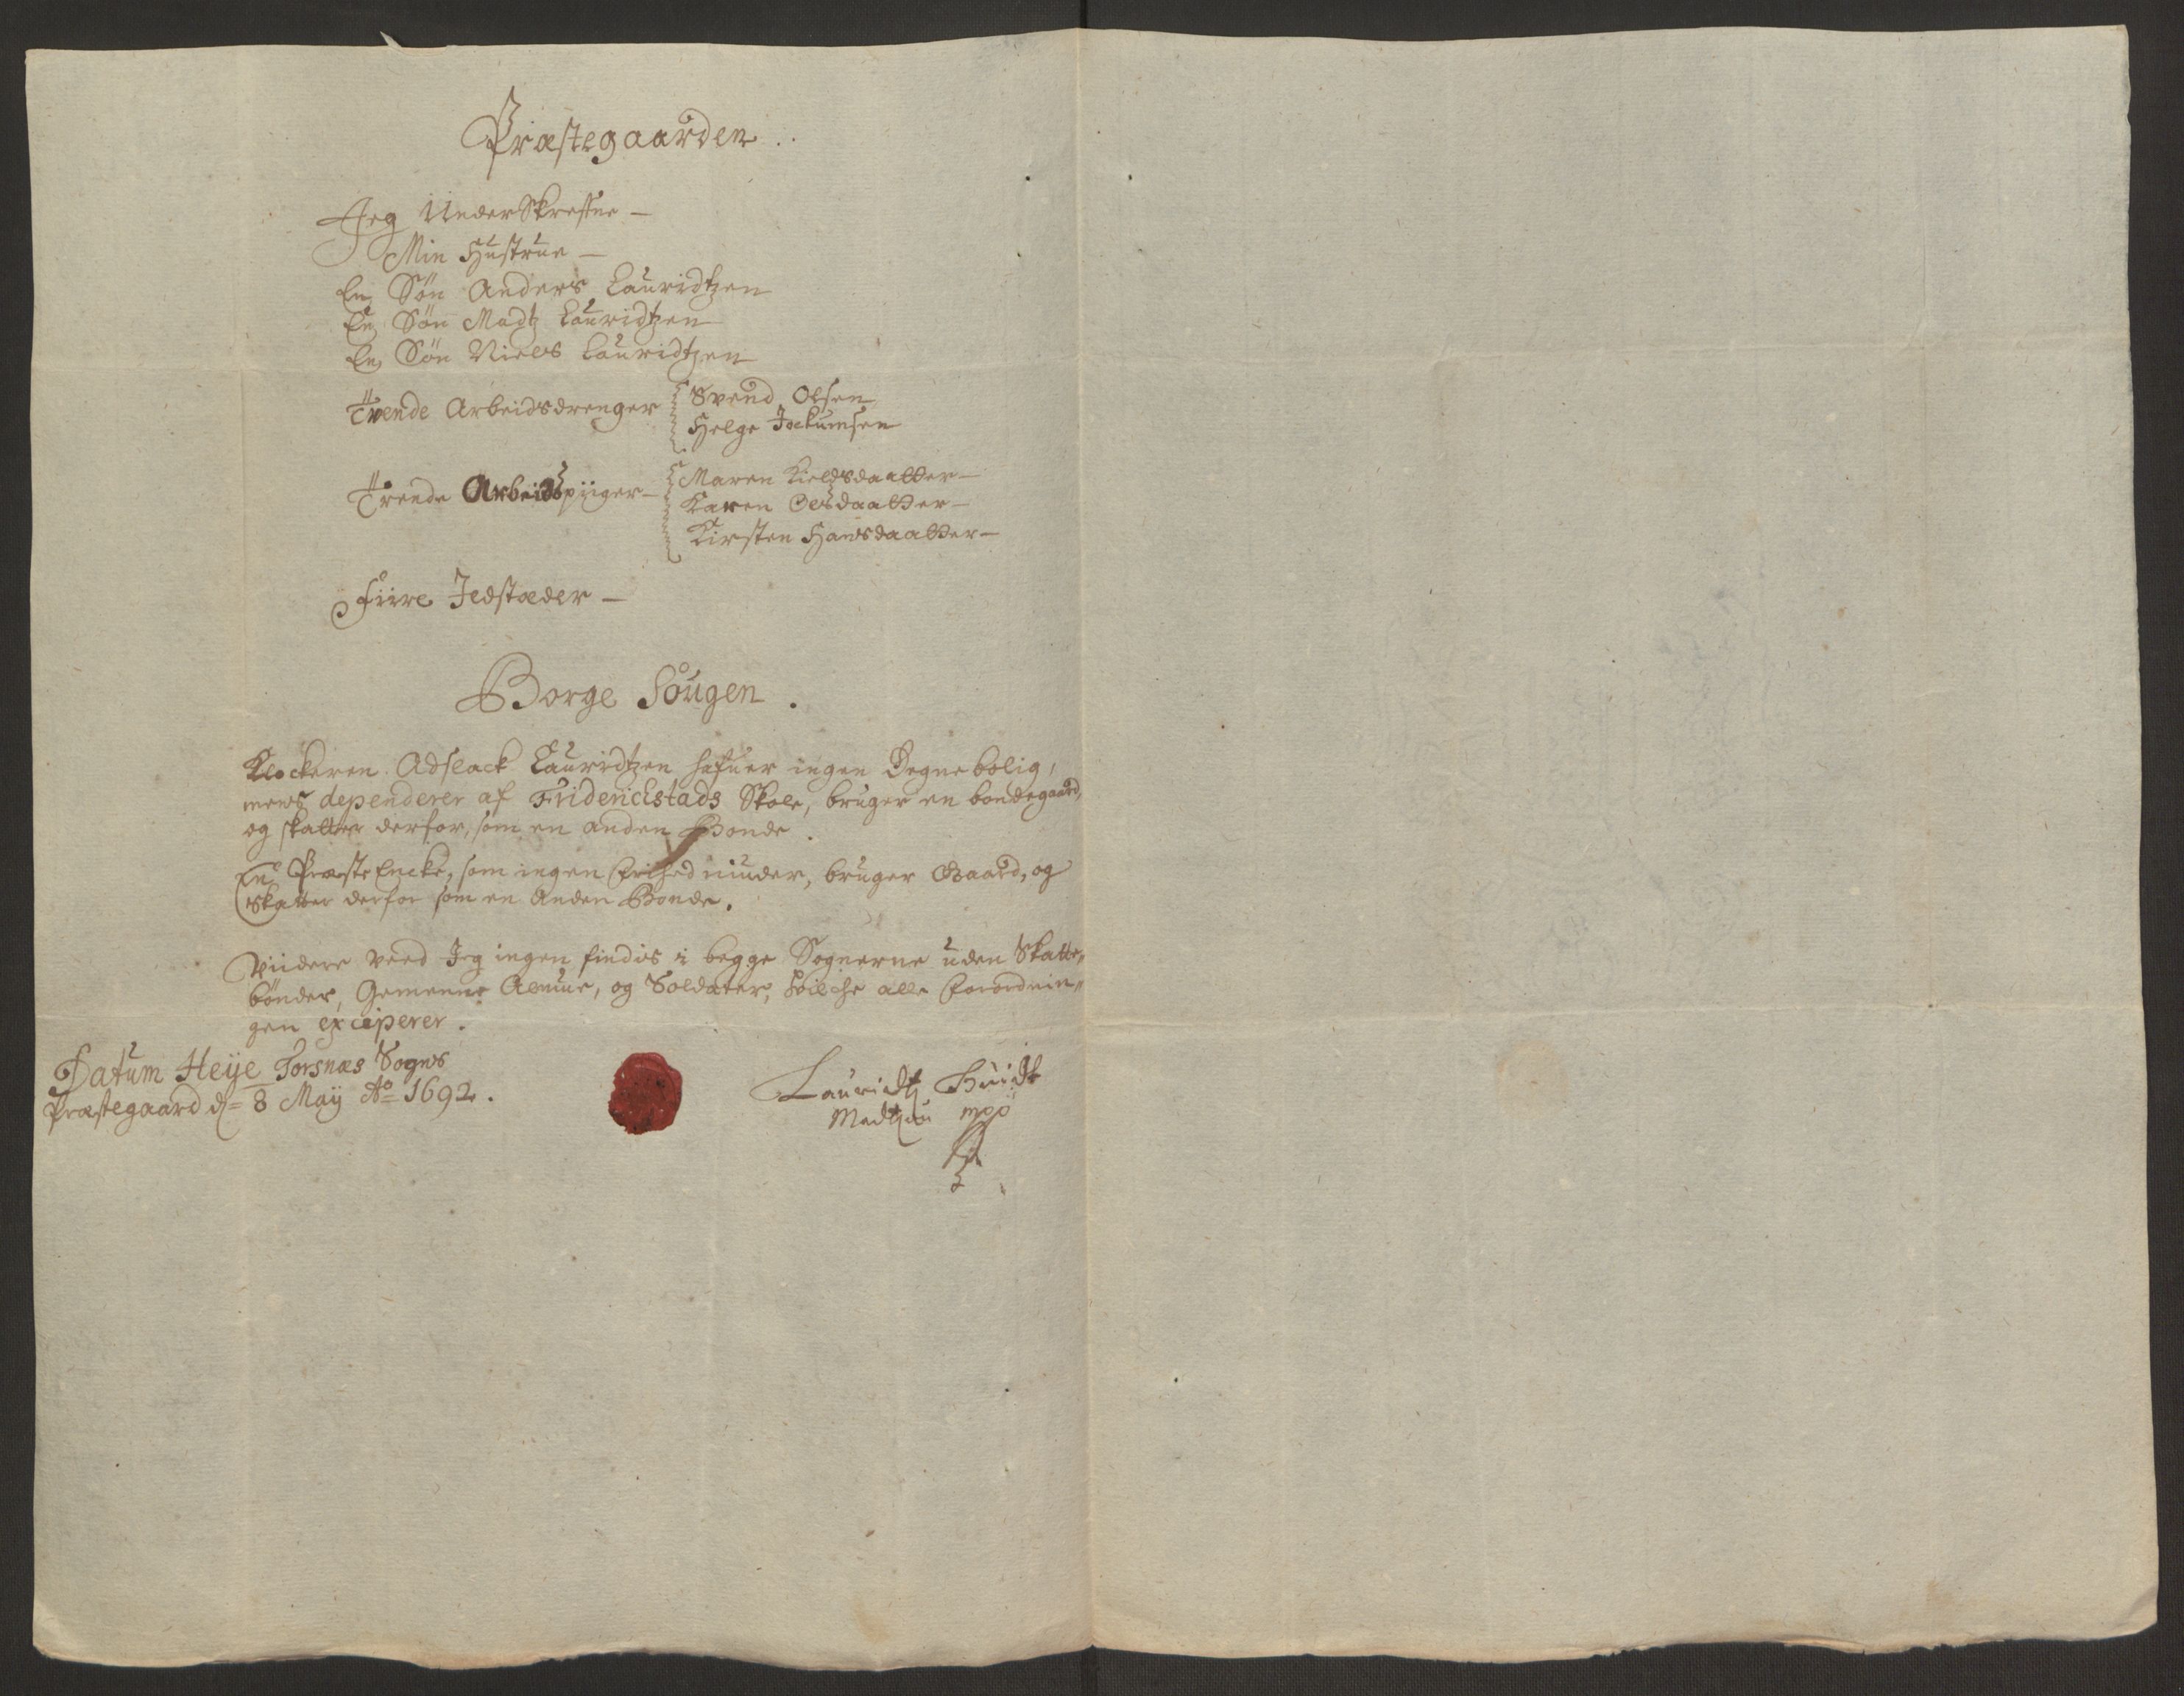 Præstegaarden..
Jeg UnderSkrefne —
Min Hustrue —
En Søn Anders Lauridtzen
En Søn Madtz Lauridtzen
En Søn Niels Lauridtzen
Tvende Arbeidsdrenger
Svend Olsen
Helge Jockumsen
Trende Arbeidspiiger —
Maren Kieldsdaatter —
Karen Olsdaatter —
Kirsten Hansdaatter —
Fiire Ildstæder —
Borge Sougen.
Klockeren Adslack Lauridtzen hafuer ingen Degnebolig,
mens dependerer af Friderichstads Skole, bruger en bondegaard,
og skatter derfor, som en anden Bonde.
En Præste Encke, som ingen frihed niuder, bruger Gaard, og
Skatter derfor som en Anden Bonde.
Viidere veed Jeg ingen findis i begge Sognerne uden Skatte„
bønder, Gemeene Almue, og Soldater, huilche alle forordnin„
gen exciperer.
Datum Heije Torsnæs Sogns
Præstegaard d= 8 Maij Ao 1692.
Lauridtz Huidt
Madtzøn mpp